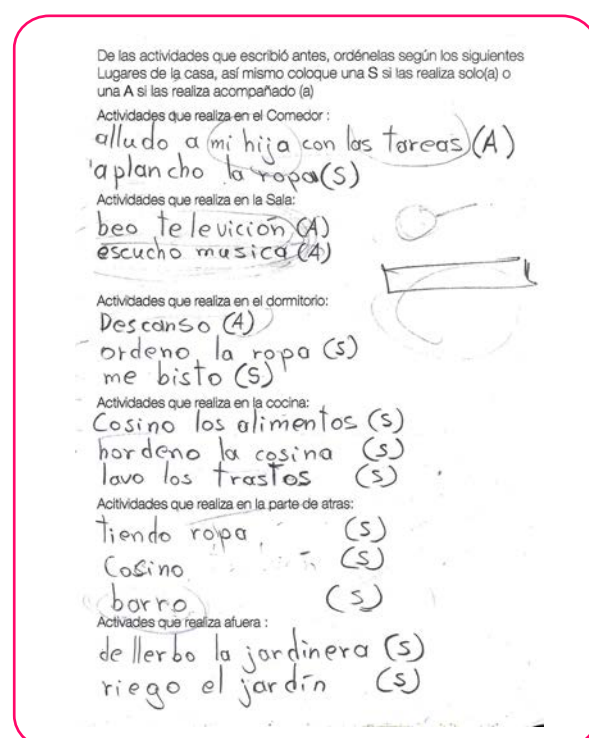 De las actividades que escribió antes, ordénelas según los siguientes
Lugares de la casa, así mismo coloque una S si las realiza solo(a) o
una A si las realiza acompañado (a)
Actividades que realiza en el Comedor :
alludo a mi hija con las tareas (A)
aplancho la ropa (S)
Actividades que realiza en la Sala:
beo televición (A)
escucho musica (A)
Actividades que realiza en el dormitorio:
Descanso (A)
ordeno la ropa (S)
me bisto (S)
Actividades que realiza en la cocina:
Cosino los alimentos (S)
hordeno la cosina (S)
lavo los trastos (S)
Acitividades que realiza en la parte de atras:
tiendo ropa (S)
Cosino (S)
barro (S)
Activades que realiza afuera :
dellerbo la jardinera (S)
riego el jardín (S)